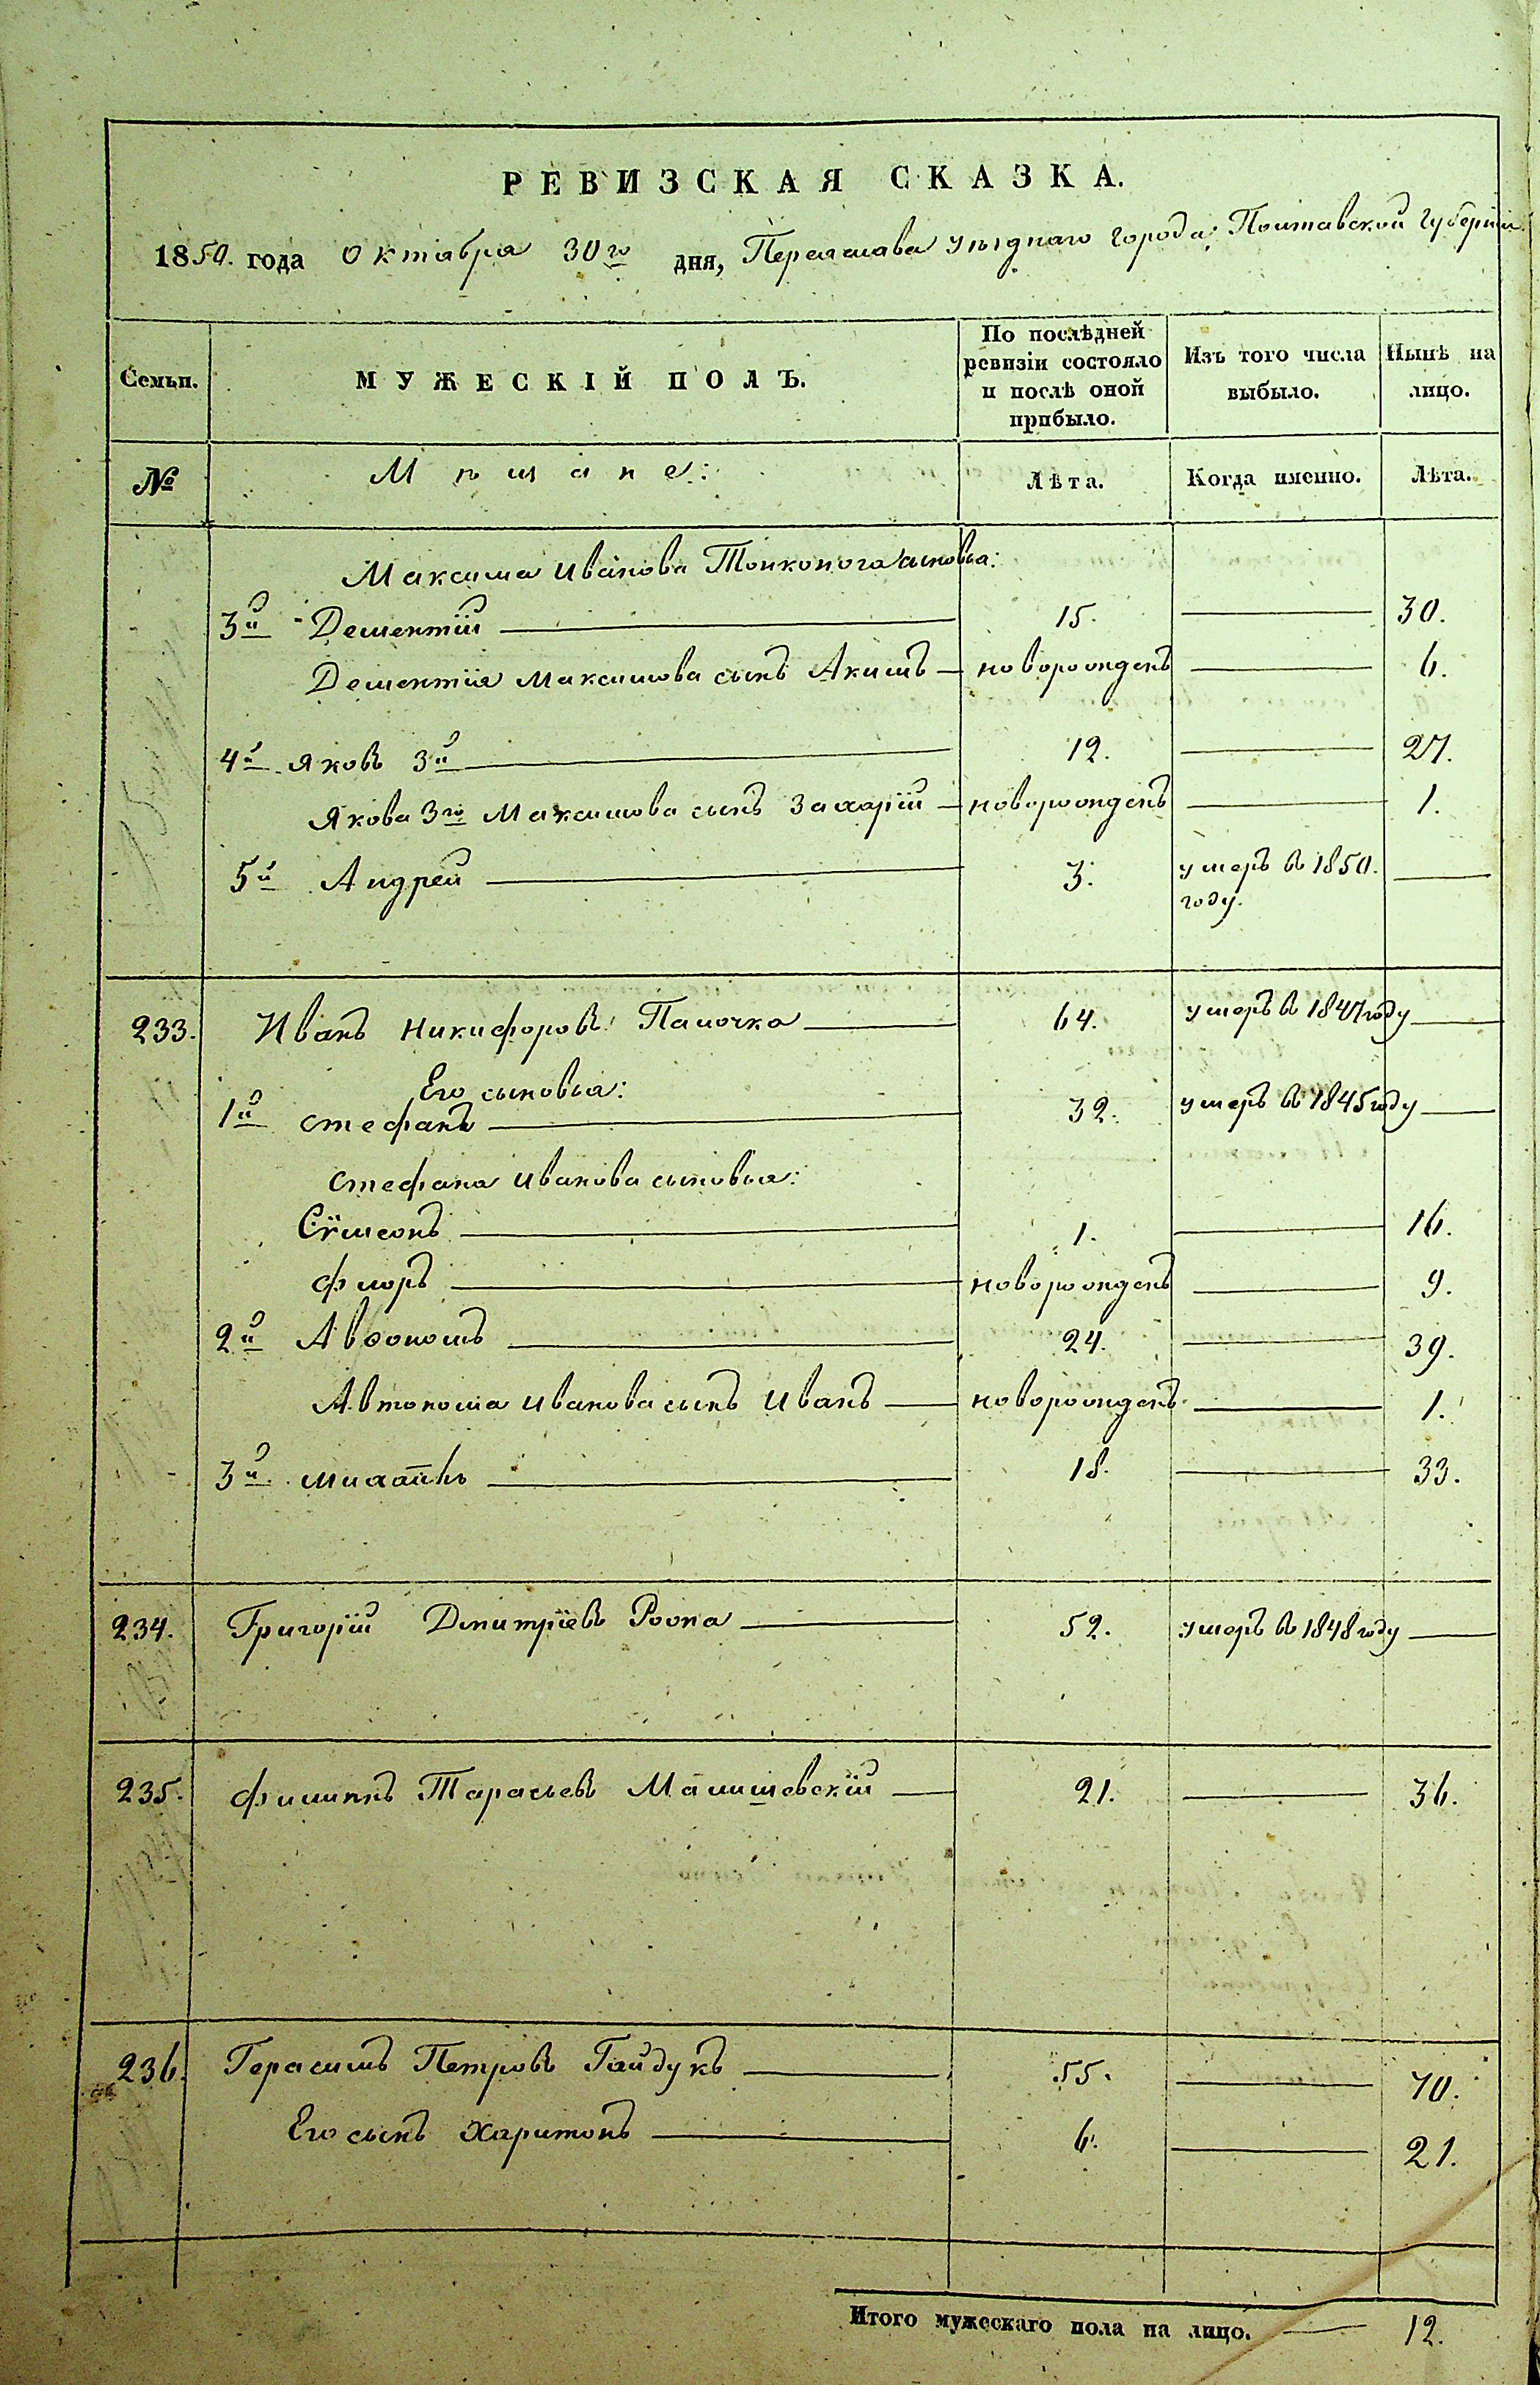 РЕВИЗСКАЯ СКАЗКА.
1850. года Октября 30го дня, Переяслава уѣзднаго города, Полтавской Губерніи
Семьи. МУЖЕСКІЙ ПОЛЪ. По послѣдней ревизіи состояло и послѣ оной прибыло. Изъ того числа выбыло. Нынѣ на лицо.
№ Мѣщане: Лѣта. Когда именно. Лѣта.
Максима Иванова Тонконога сыновья:
3й Дементій 15. 30.
Дементія Максимова сынъ Акимъ новорожденъ 6.
4й Яковъ 3й 12. 27.
Якова 3го Максимова сынъ Захарій новорожденъ 1.
5й Андрей 3. умеръ в 1850. году.
233. Иванъ Никифоровъ Палочка 64. умеръ в 1847 году
Его сыновья:
1й Стефанъ 32. умеръ в 1845 году
Стефана Иванова сыновья:
Сѷмеонъ 1. 16.
Флоръ новорожденъ 9.
2й Авѳономъ 24. 39.
Автонома Иванова сынъ Иванъ новорожденъ 1.
3й Михаилъ 18. 33.
234. Григорій Дмитріевъ 52. умеръ в 1848 году
235. Филипъ Тарасьевъ Малишевскій 21. 36.
236. Герасимъ Петровъ Гайдукъ 55. 70.
Его сынъ Харитонъ 6. 21.
Итого мужескаго пола на лицо. 12.